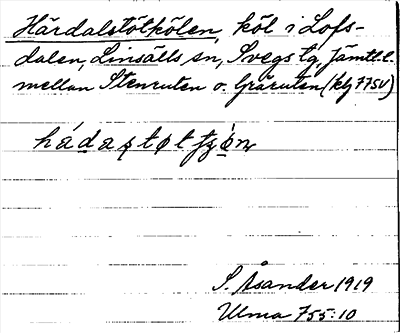 Härdalstötkölen, köl i Lofs-
dalen, Linsälls sn, Svegs tg, Jämtl. l.
mellan Stenruten o. Gråruten (kbj 77SV)
S. Åsander 1919
Ulma 755:10